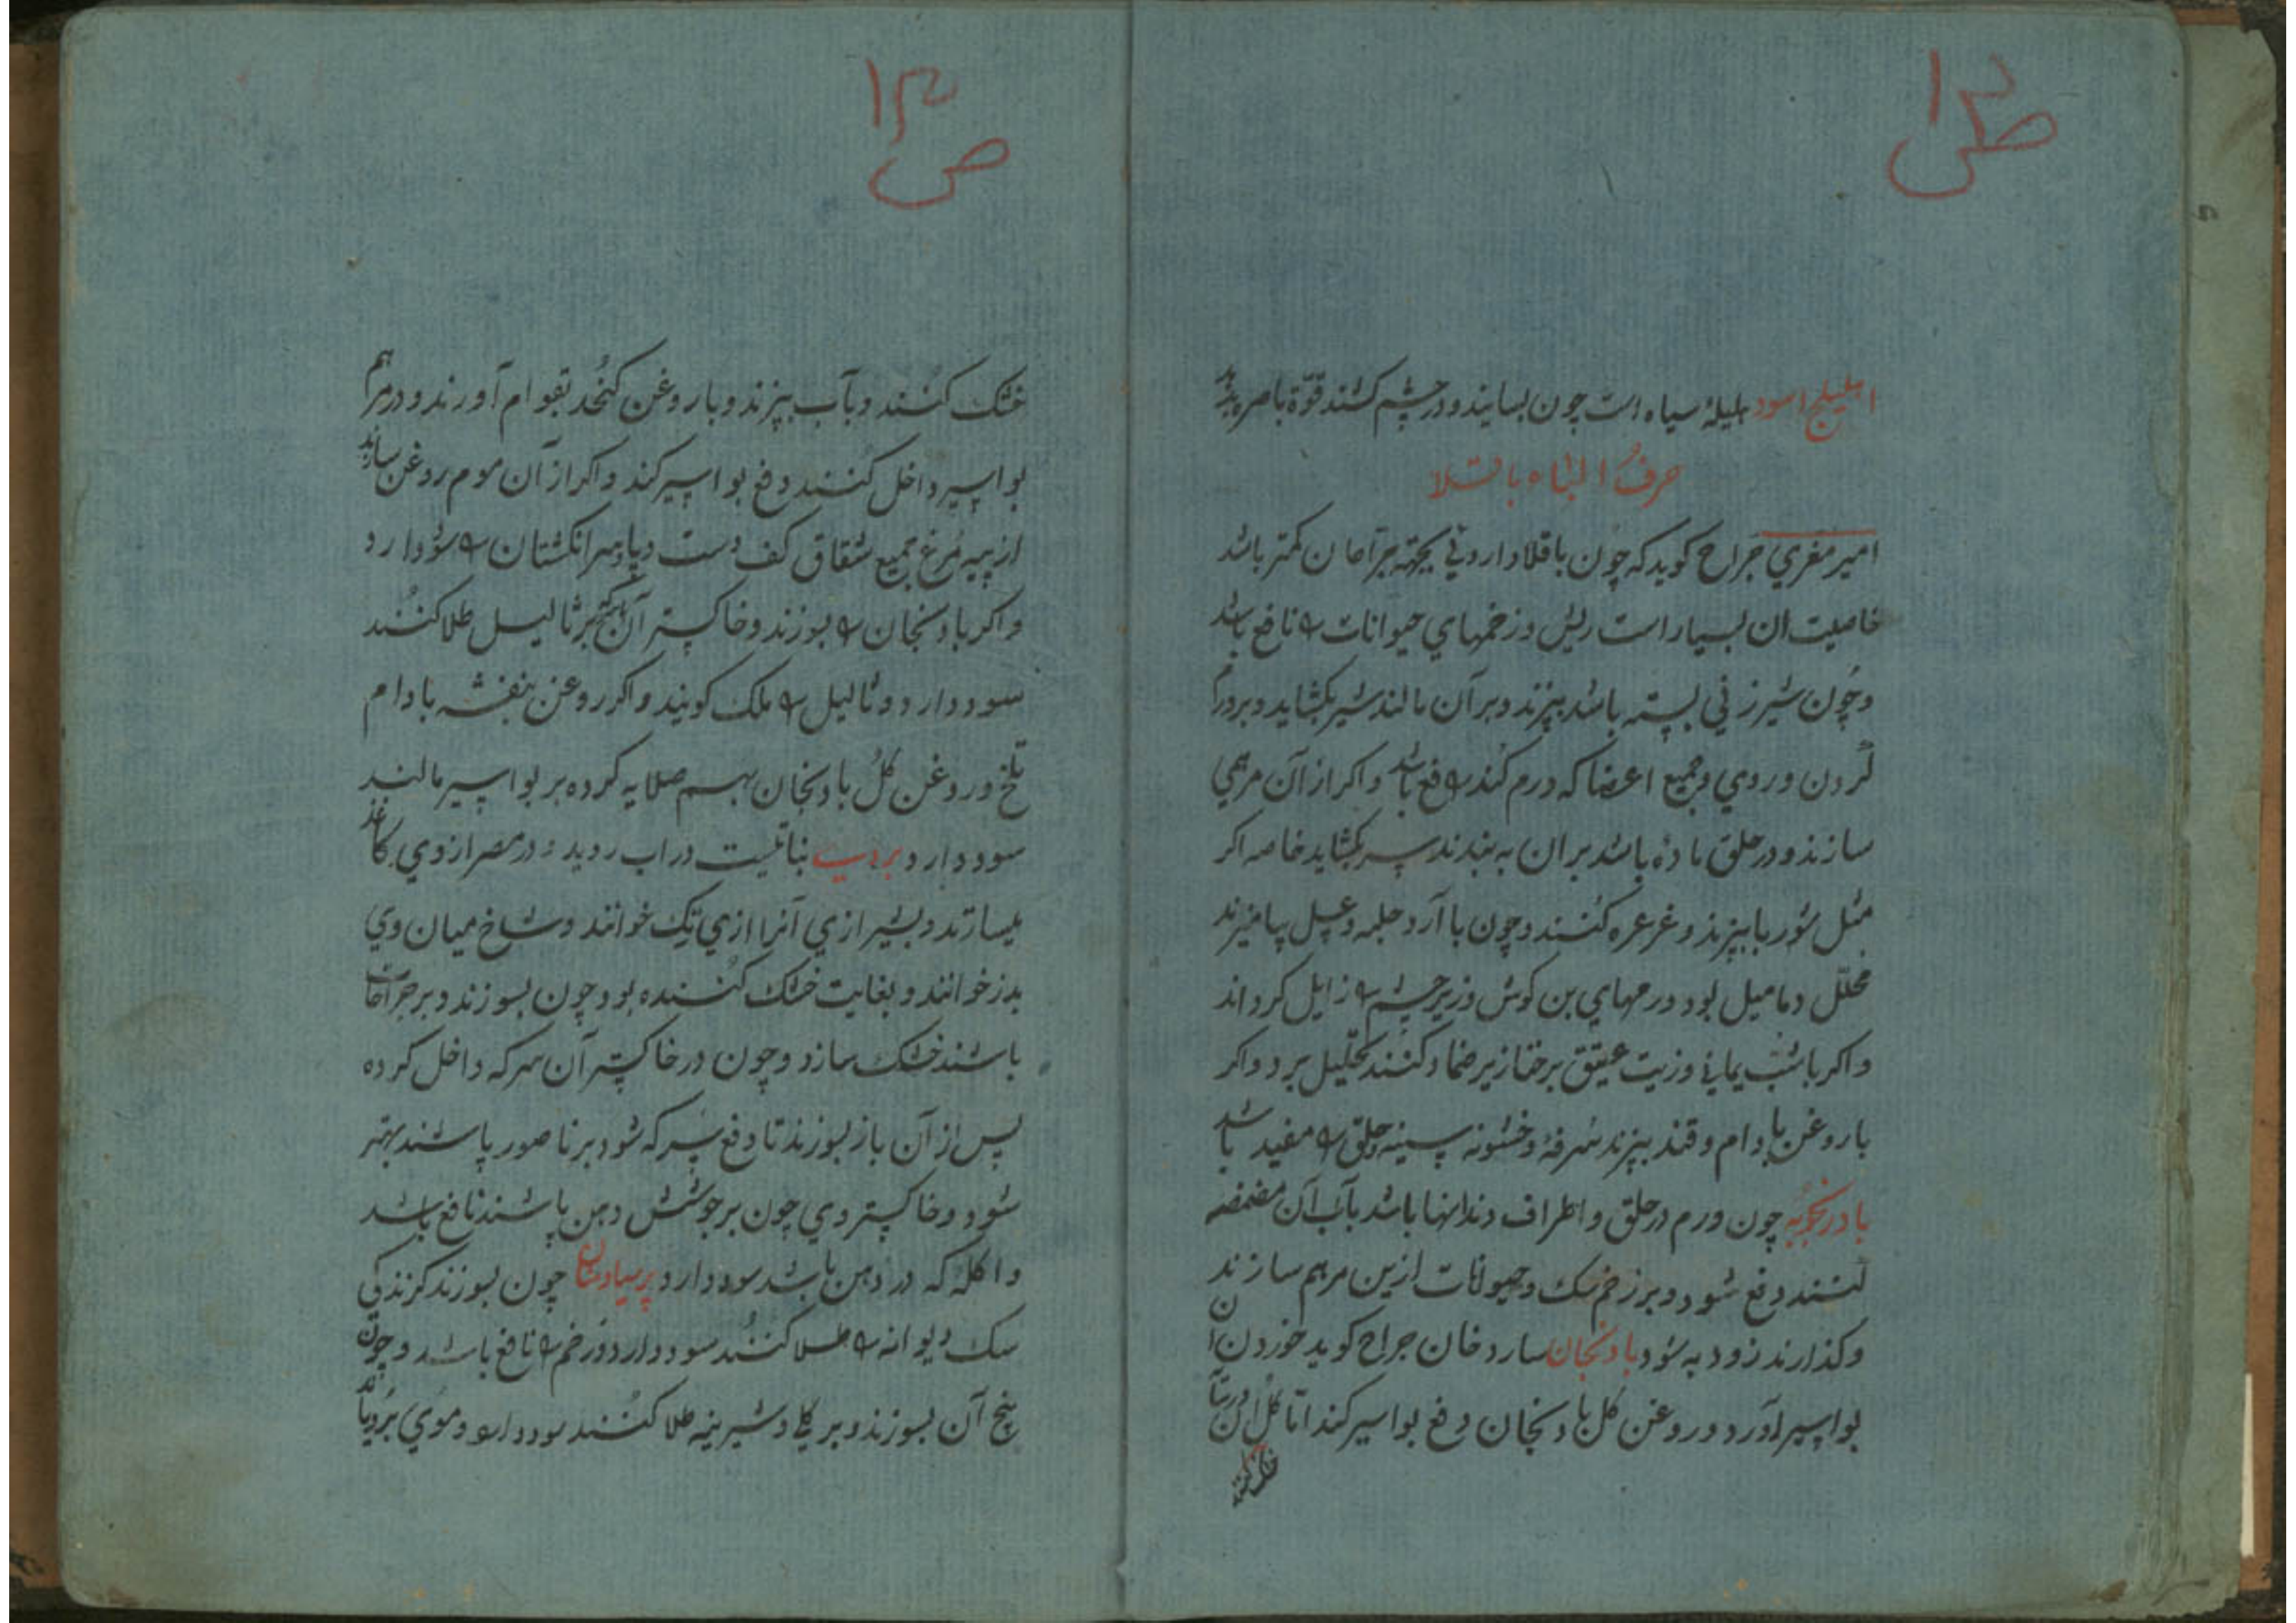 ص ۱۲
اهلیلج اسود هلیلهٔ سیاه است چون بسایند و در چشم کشند قوّة باصره
حرف الباء باقلا
امیر مغربي جراح کوید که چون باقلا کمتر باشد
خاصیت ان بسیار است ریش و زخمهاي حیوانات را نافع باشد
و چون شیر زني بسته باشد بپزند و بر آن مالند شیر بکشاید و بر ورم
کردن و روي و جمیع اعضا که ورم کند را نافع باشد و اکر از آن مرهمي
سازند و در حلق مادّه باشد بران به بندند سر بکشاید خاصه اکر
مثل شوربا بپزند و غرغره کنند و چون با آرد حلبه و عسل بیامیزند
محلّل دمامیل بود ورمهاي بن کوش و زیر چشم را زایل کرداند
و اکر با شب یماني و زیت عتیق بر خنازیر ضماد کنند تحلیل برد و اکر
با روغن بادام و قند بپزند سرفهٔ و خشونه سینه و حلق را مفید باشد
بادرنجویه چون ورم در حلق و اطراف دندانها باشد بآب آن مضمضه
کنند دفع شود و بر زخم سک و حیوانات ازین مرهم سازند
و کذارند زود به شود بادنجان سارد خان جراح کوید خوردن ان
بواسیر آورد و روغن کل بادنجان دفع بواسیر کند امّا کل
خشک کنند
ص ۱۳
خشک کنند و بآب بپزند و با روغن کنجد بقوام آورند و در مرهم
بواسیر داخل کنند دفع بواسیر کند و اکر از آن موم روغن سازند
از پیه مرغ جمیع شقاق کف دست و پا و سر انکشتان را سود دارد
و اکر بادنجان را بسوزند و خاکستر آن بر ثالیل طلا کنند
سود دارد و ثالیل را ملک کویند و اکر روغن بنفشه بادام
تلخ و روغن کل بادنجان بهم صلایه کرده بر بواسیر مالند
سود دارد بردي نباتیست در اب روید و در مصر از وي کاغذ
میسازند و بشیرازي آنرا خوانند و شاخ میان وي
خوانند و بغایت خشک کننده بود چون بسوزند و بر جراحات
باشند خشک سازد و چون در خاکستر آن سرکه داخل کرده
پس از آن باز بسوزند تا دفع سرکه شود بر ناصور پاشند بهتر
شود و خاکستر وي چون بر جوشش دهن پاشند نافع باشد
و اکله که در دهن باشد سود دارد پرسیاوشان چون بسوزند کزندکی
سک دیوانه را طلا کنند سود دارد و زخم را نافع باشد و چون
بیخ آن بسوزند و بر کلي و شیرینه طلا کنند سود دارد و موي برویاند